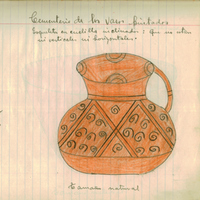 Cementerio de los vasos pintados
en cuclillas inclinados: que no esten
ni verticales ni horizontales.
tamaño natural